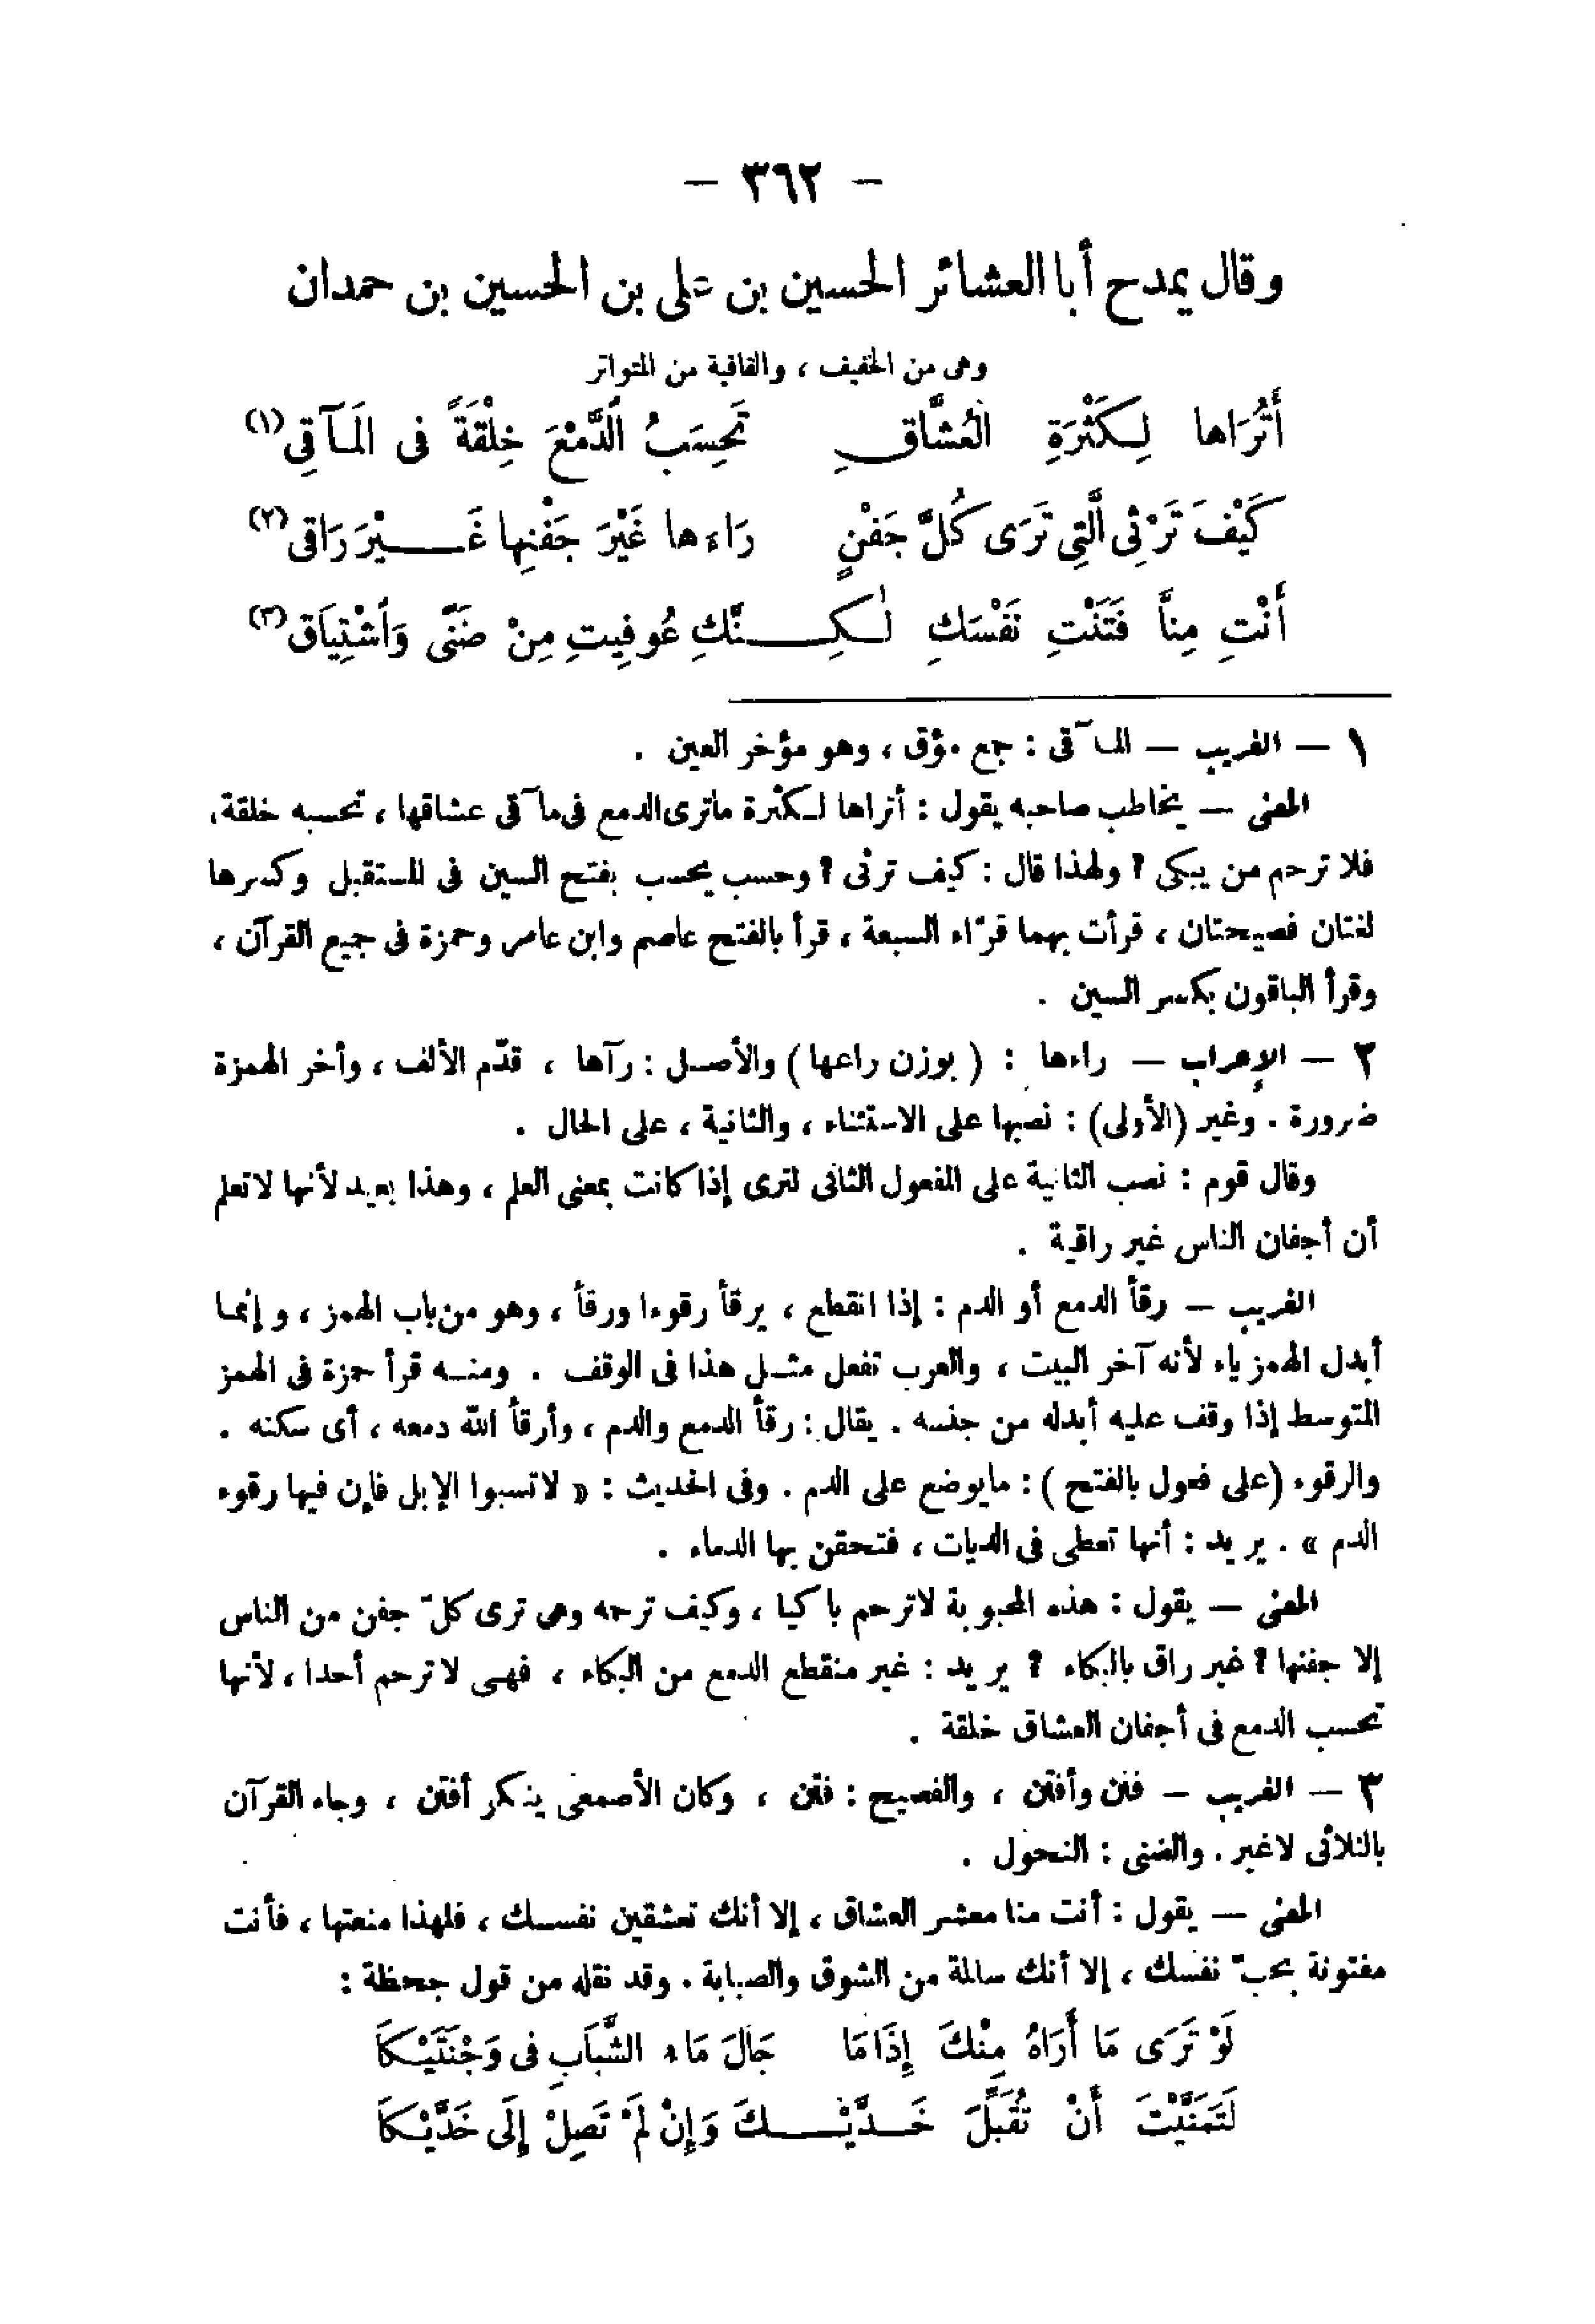 — ٣٦٢ —
وقال يمدح أبا العشائر الحسين بن على بن الحسين بن حمدان
وهى من الخفيف ، والقافية من المتواتر
أَتُرَاها لِكَثْرَةِ الْعُشَّاقِ تَحْسِبُ الدَّمْعَ خِلْقَةً فى المَآقِى (١)
كَيْفَ تَرْثِى الَّتِى تَرَى كُلَّ جَفْنٍ رَاءَها غَيْرَ جَفْنِها غَيْرَ رَاقِى (٢)
أَنْتِ مِنَّا فَتَنْتِ نَفْسَكِ لٰكِنَّكِ عُوفِيتِ مِنْ ضَنًى وَاشْتِيَاقِ (٣)
١ — الغريب — المآقى : جمع مؤق ، وهو مؤخر العين .
المعنى — يخاطب صاحبه يقول : أتراها لكثرة ماترى الدمع فى مآقى عشاقها ، تحسبه خلقة ،
فلا ترحم من يبكى ؟ ولهذا قال : كيف ترثى ؟ وحسب يحسب بفتح السين فى المستقبل وكسرها
لغتان فصيحتان ، قرأت بهما قرّاء السبعة ، قرأ بالفتح عاصم وابن عامر وحمزة فى جميع القرآن ،
وقرأ الباقون بكسر السين .
٢ — الإعراب — راءها : ( بوزن راعها ) والأصل : رآها ، قدّم الألف ، وأخر الهمزة
ضرورة . وغير (الأولى) : نصبها على الاستثناء ، والثانية ، على الحال .
وقال قوم : نصب الثانية على المفعول الثانى لترى إذا كانت بمعنى العلم ، وهذا بعيد لأنها لاتعلم
أن أجفان الناس غير راقية .
الغريب — رقأ الدمع أو الدم : إذا انقطع ، يرقأ رقوءا ورقأ ، وهو من باب الهمز ، وإنما
أبدل الهمز ياء لأنه آخر البيت ، والعرب تفعل مثل هذا فى الوقف . ومنه قرأ حمزة فى الهمز
المتوسط إذا وقف عليه أبدله من جنسه . يقال : رقأ الدمع والدم ، وأرقأ الله دمعه ، أى سكنه .
والرقوء (على فعول بالفتح ) : مايوضع على الدم . وفى الحديث : « لاتسبوا الإبل فإن فيها رقوء
الدم » . يريد : أنها تعطى فى الديات ، فتحقن بها الدماء .
المعنى — يقول : هذه المحبوبة لاترحم باكيا ، وكيف ترحمه وهى ترى كلّ جفن من الناس
إلا جفنها ؟ غير راق بالبكاء ؟ يريد : غير منقطع الدمع من البكاء ، فهى لاترحم أحدا ، لأنها
تحسب الدمع فى أجفان العشاق خلقة .
٣ — الغريب — فتن وأفتن ، والفصيح : فتن ، وكان الأصمعى ينكر أفتن ، وجاء القرآن
بالثلاثى لاغير . والضنى : النحول .
المعنى — يقول : أنت منا معشر العشاق ، إلا أنك تعشقين نفسك ، فلهذا منعتها ، فأنت
مفتونة بحبّ نفسك ، إلا أنك سالمة من الشوق والصبابة . وقد نقله من قول جحظة :
لَوْ تَرَى مَا أَرَاهُ مِنْكَ إِذَا مَا جَالَ مَاءُ الشَّبَابِ فى وَجْنَتَيْكَا
لَتَمَنَّيْتَ أَنْ تُقَبِّلَ خَدَّيْكَ وَإِنْ لَمْ تَصِلْ إِلَى خَدَّيْكَا